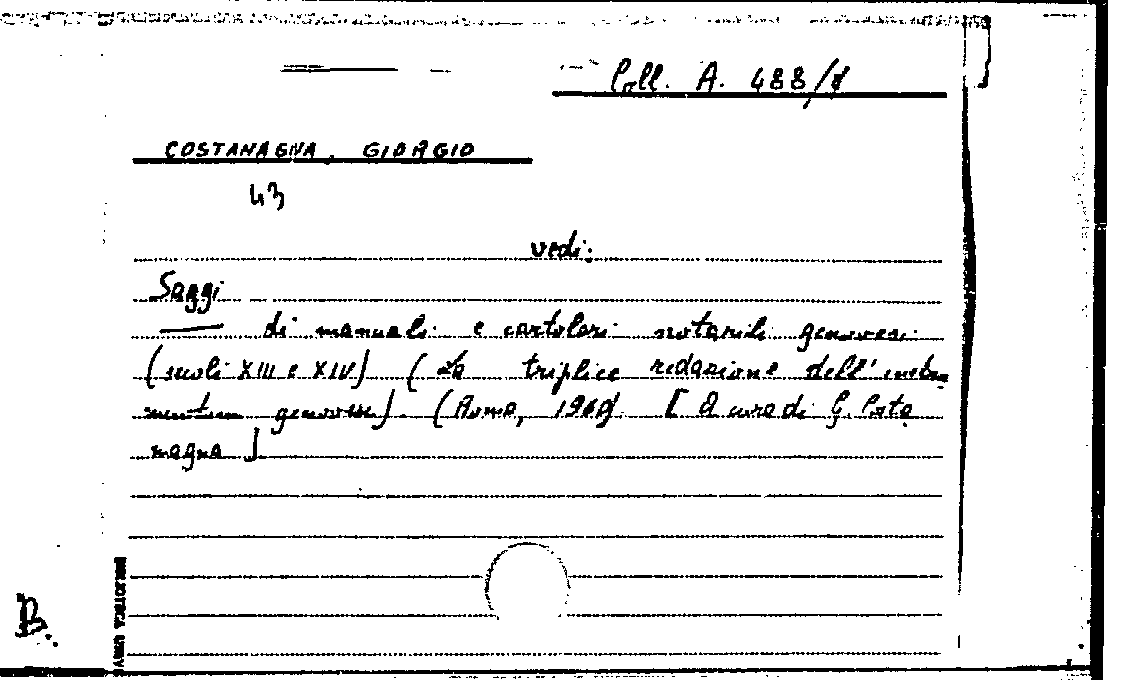 Coll. A. 488/8
COSTAMAGNA, GIORGIO
43
vedi:
Saggi
di manuali e cartolari notarili genovesi
(secoli XIII e XIV) (La triplice redazione dell'instru
mentum genovese). (Roma, 1960). [A cura di G. Costa
magna]
B.
BIBLIOTECA